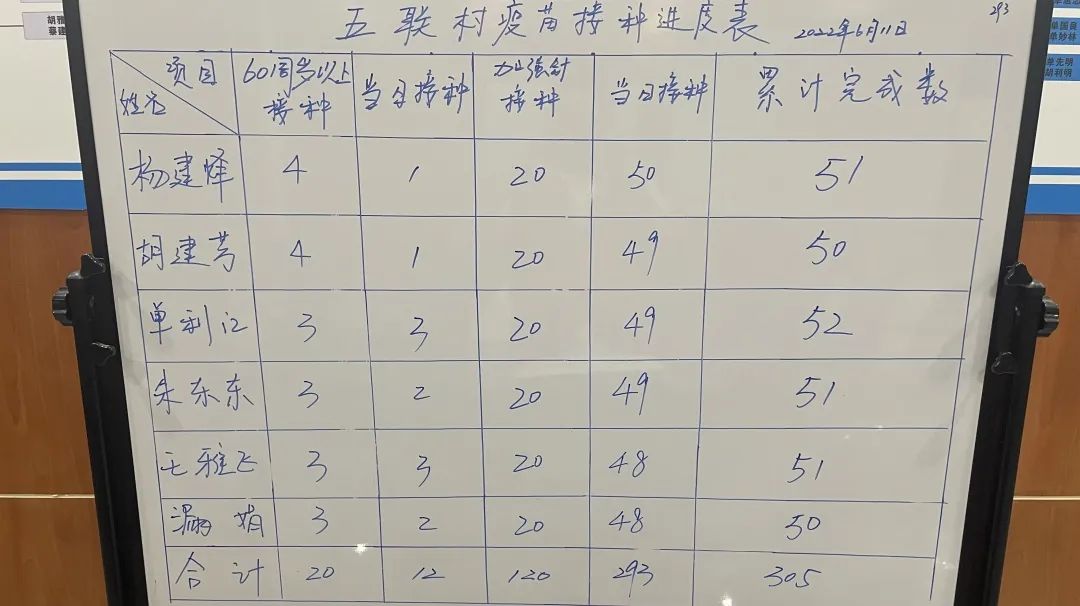 五联村疫苗接种进度表 2022年6月11日
293
项目 姓名 60周岁以上接种 当日接种 加强针接种 当日接种 累计完成数
杨建烽 4 1 20 50 51
胡建芳 4 1 20 49 50
单利江 3 3 20 49 52
朱东东 3 2 20 49 51
王雅飞 3 3 20 48 51
娟 3 2 20 48 50
合计 20 12 120 293 305
胡雅
蔡建
单国良
单妙林
单先明
胡利明